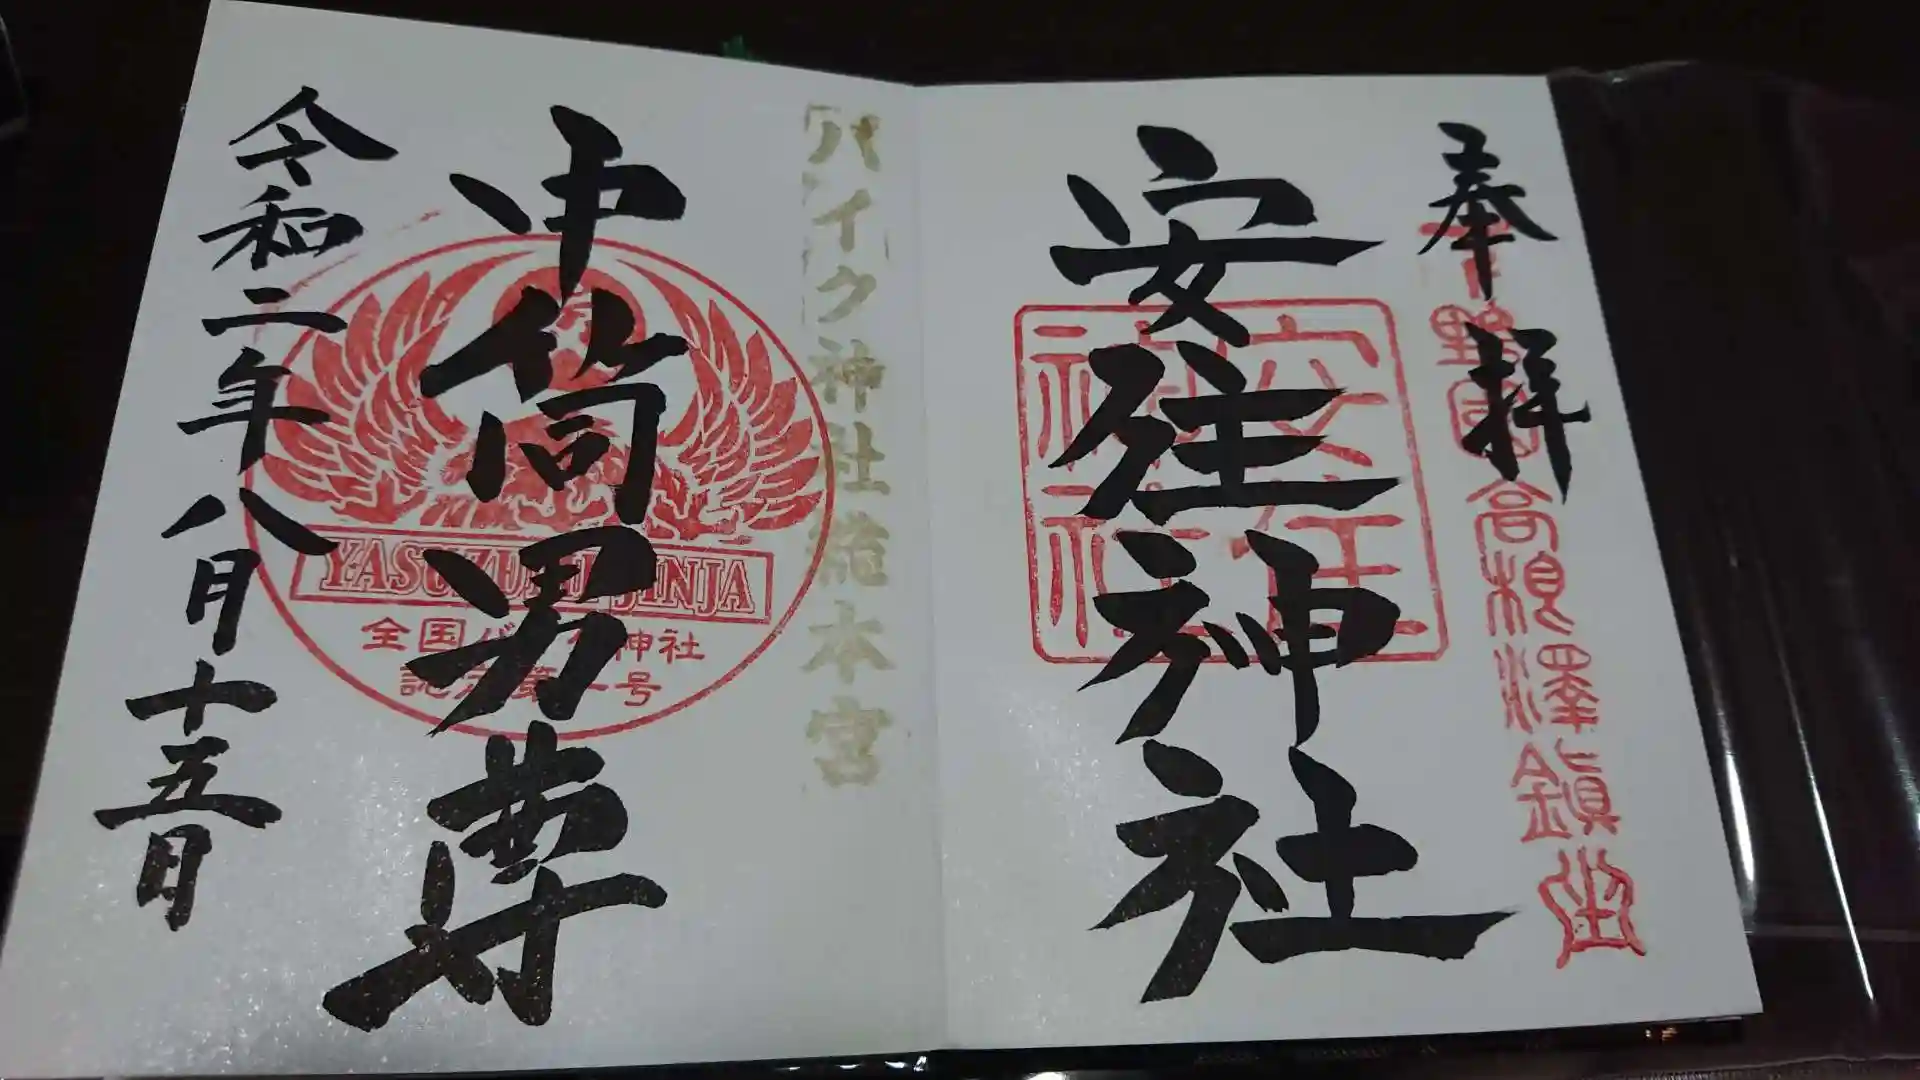 奉拝
下野國高根澤鎮坐
安住神社
安住神社
バイク神社総本宮
中筒男尊
YASUZUMI JINJA
全国バイク神社
認定第一号
令和二年八月十五日